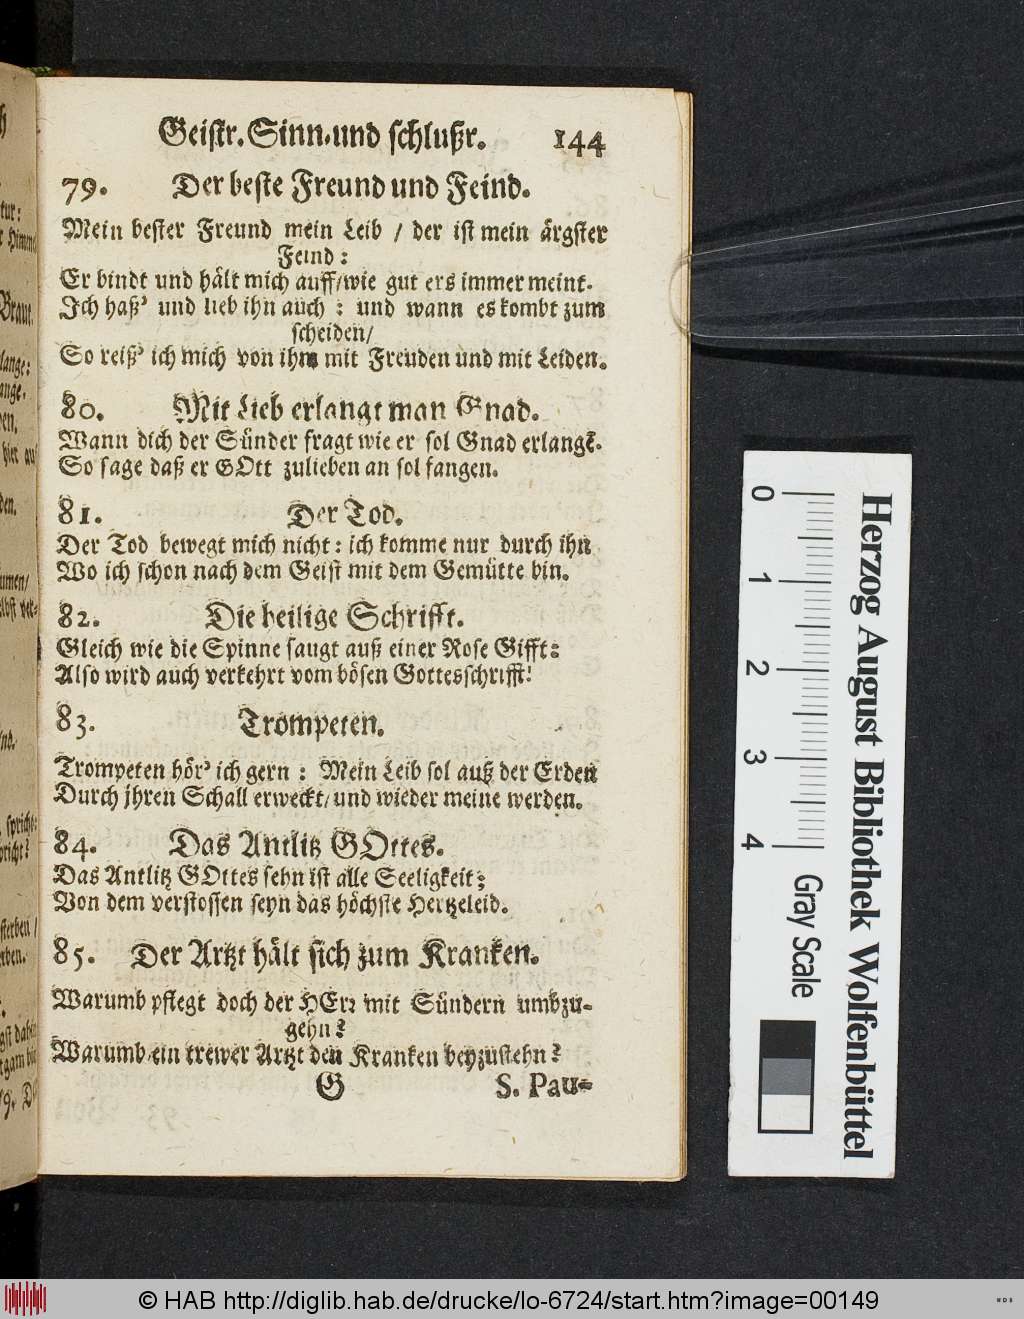 Geistr. Sinn- und schlußr. 144
79. Der beste Freund und Feind.
Mein bester Freund mein Leib / der ist mein ärgster
Feind:
Er bindt und hält mich auff/wie gut ers immer meint.
Ich haß' und lieb ihn auch: und wann es kombt zum
scheiden/
So reiß' ich mich von ihm mit Freuden und mit Leiden.
80. Mit Lieb erlangt man Gnad.
Wann dich der Sünder fragt wie er sol Gnad erlangē.
So sage daß er GOtt zulieben an sol fangen.
81. Der Tod.
Der Tod bewegt mich nicht: ich komme nur durch ihn
Wo ich schon nach dem Geist mit dem Gemütte bin.
82. Die heilige Schrifft.
Gleich wie die Spinne saugt auß einer Rose Gifft:
Also wird auch verkehrt vom bösen Gottesschrifft!
83. Trompeten.
Trompeten hör' ich gern: Mein Leib sol auß der Erden
Durch jhren Schall erweckt/und wieder meine werden.
84. Das Antlitz GOttes.
Das Antlitz GOttes sehn ist alle Seeligkeit;
Von dem verstossen seyn das höchste Hertzeleid.
85. Der Artzt hält sich zum Kranken.
Warumb pflegt doch der HErr mit Sündern umbzu-
gehn?
Warumb ein trewer Artzt den Kranken beyzustehn?
G S. Pau-
0 1 2 3 4
Gray Scale
Herzog August Bibliothek Wolfenbüttel
© HAB http://diglib.hab.de/drucke/lo-6724/start.htm?image=00149